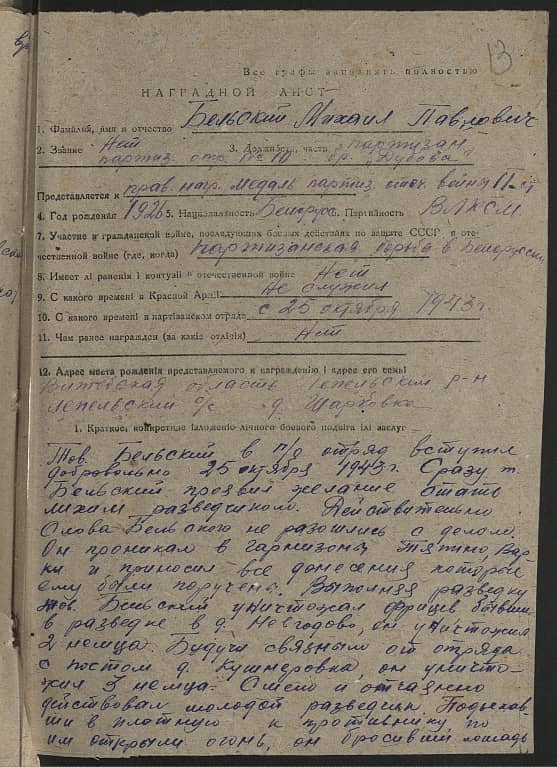 13
Все графы заполнять полностью
НАГРАДНОЙ ЛИСТ
1. Фамилия, имя и отчество Бельский Михаил Павлович
2. Звание Нет 3. Должность, часть партизан
партиз. отр. № 10 бр. "Дубова"
Представляется к прав. нагр. медаль партиз. отеч. войны II-ст
4. Год рождения 1926 5. Национальность Белорус Партийность ВЛКСМ
7. Участие в гражданской войне, последующих боевых действиях по защите СССР и оте-
чественной войне (где, когда) Партизанская борьба в Белоруссии
8. Имеет лі ранения і контузіі в отечественной войне Нет
9. С какого временi в Красной Армії Не служил
10. С какого временi в партiзанском отряде с 25 октября 1943 г.
11. Чем ранее награжден (за какiе отлiчiя) Нет
12. Адрес места рождения представляемого к награждению i адрес его семьi
Витебская область Лепельский р-н
Лепельский с/с д. Шарковка
1. Краткое, конкретное iзложенiе лiчного боевого подвiга iлi заслуг
Тов. Бельский в п/о отряд вступил
добровольно 25 октября 1943 г. Сразу т.
Бельский проявил желание стать
лихим разведчиком. Действительно
слова Бельского не разошлись с делом.
Он проникал в гарнизоны Тятино,
и приносил все донесения которые
ему были поручены. Выполняя разведку
тов. Бельский уничтожал фрицев бывши
в разведке в д. Невгодово, он уничтожил
2 немца. Будучи связным от отряда
с постом д. Кушнеровка он уничто-
жил 3 немца. Смело и отчаянно
действовал молодой разведчик Подъехав-
ши в плотную к противнику, по
им открыли огонь, он бросивши лошадь